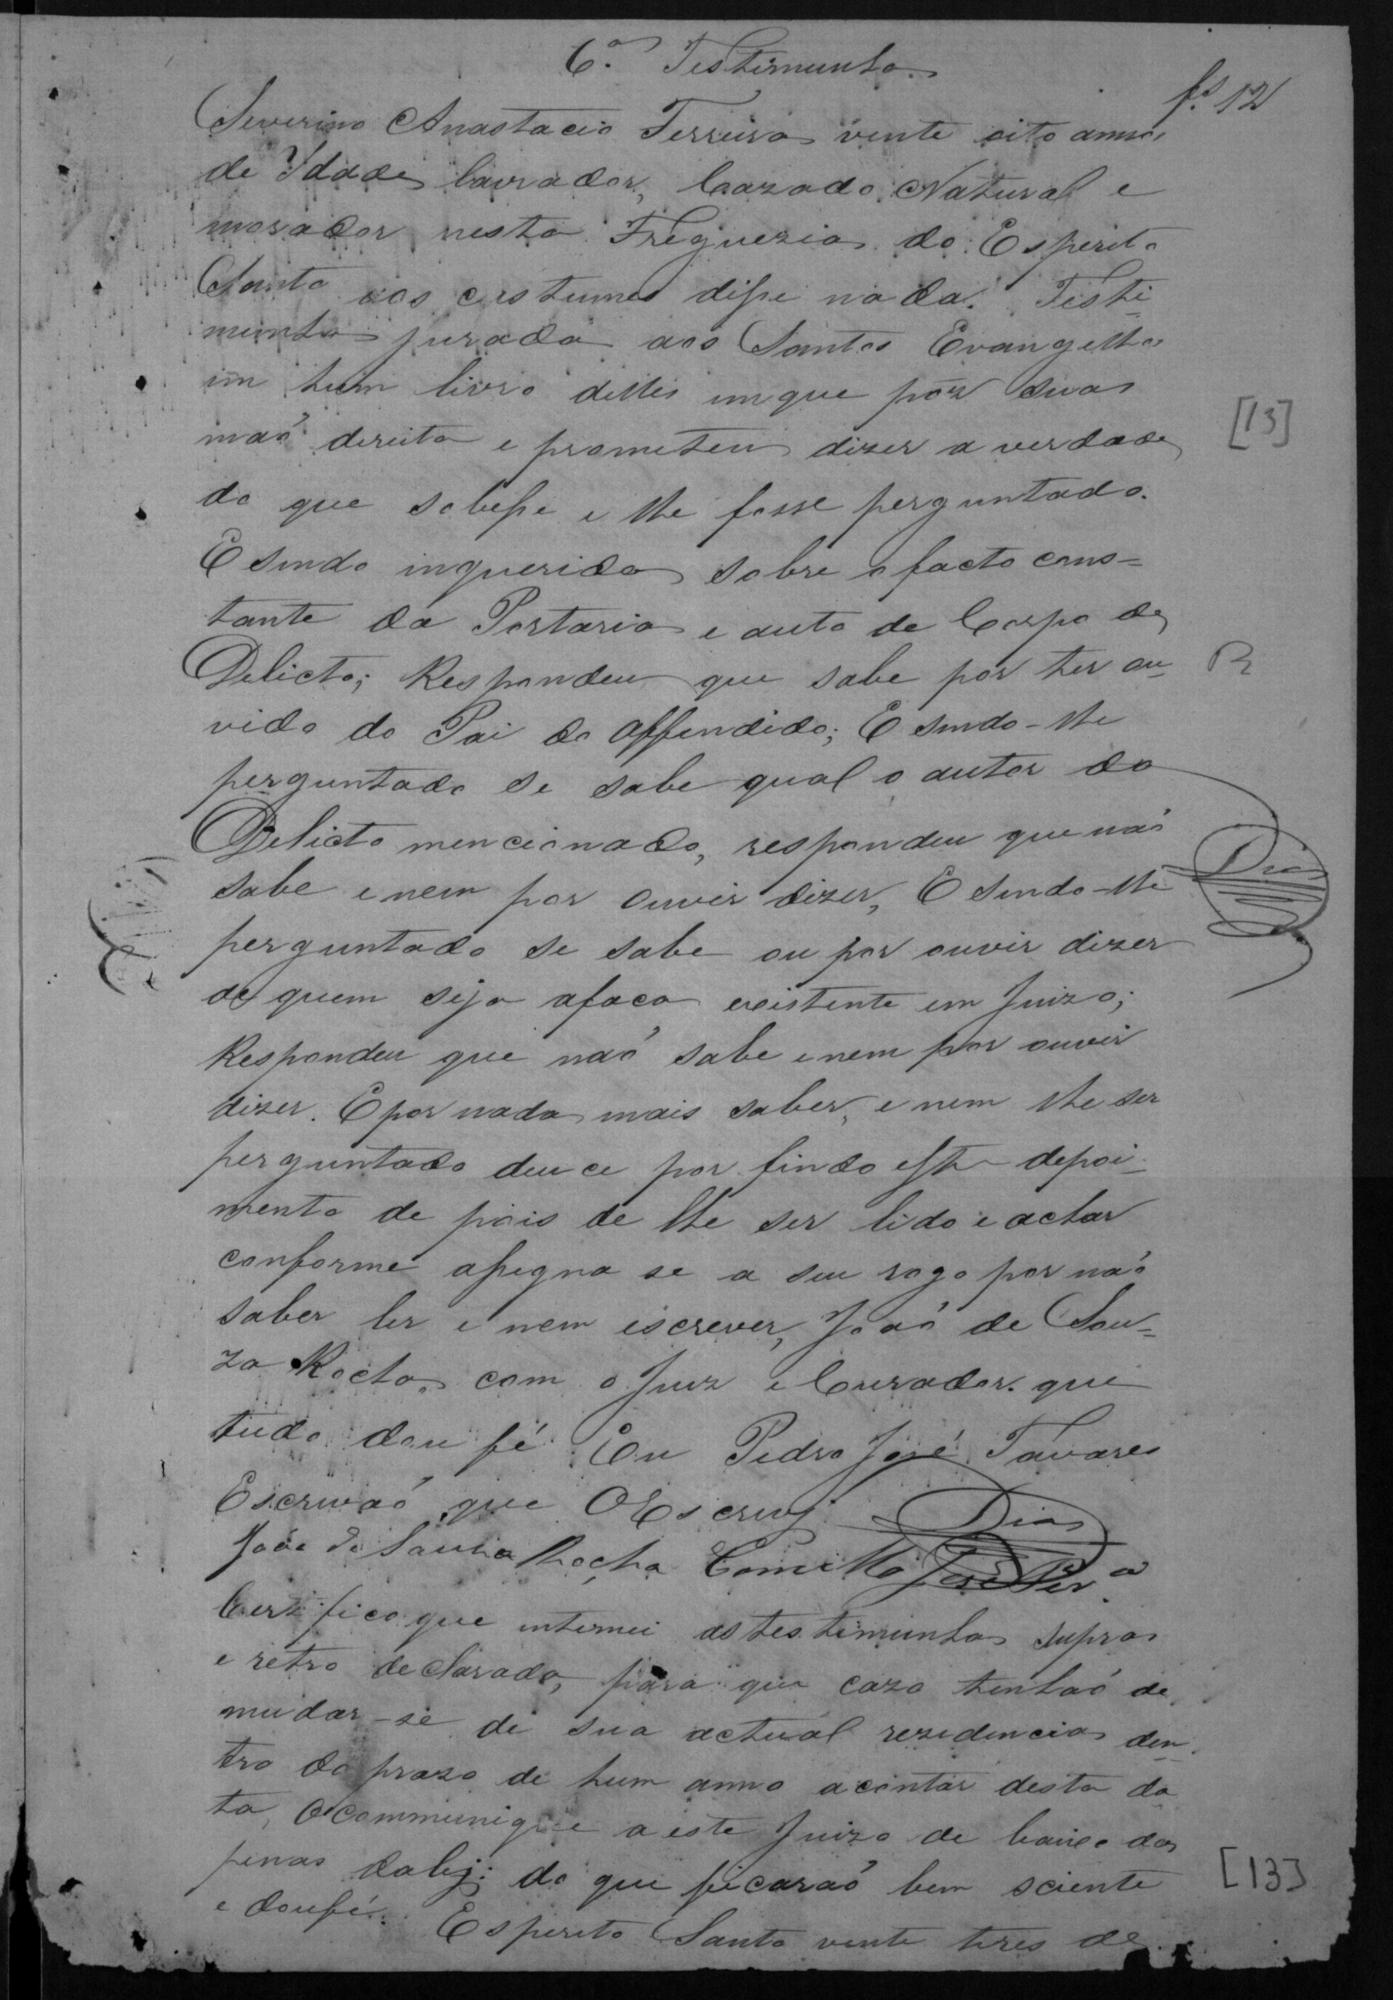 6.ª Testimunha
fs 12
Severino Anastacio Ferreira vinte oito annos
de Ydade lavrador, Cazado, Natural e
morador nesta Freguezia do Esperito
Santo aos custumes disse nada. Testi-
munha jurada aos Santos Evangelhos
im hum livro delles imque pôz sua
maõ direita e prometeu dizer a verdade
do que sobesse e lhe fosse perguntado.
E sendo inquerido sobre o facto cons-
tante da Portaria e auto de Corpo de
Delicto; Respondeu que sabe por ter ou-
vido do Pai do offendido; E sendo-lhe
perguntado se sabe qual o autor do
Delicto mencionado, respondeu que naõ
sabe e nem por ouvir dizer, E sendo-lhe
Dias
perguntado se sabe ou por ouvir dizer
de quem seja afaca existente em Juizo;
Respondeu que naõ sabe e nem por ouvir
dizer. E por nada mais saber, e nem lhe ser
perguntado deuce por findo este depoi-
mento de pois de lhe ser lido e achar
conforme assigna se a seu rogo por naõ
saber ler e nem escrever, Joaõ de Sou-
za Rocha, com o Juiz e Curador. que
tudo dou fé. Eu Pedro José Tavares
Escrivaõ que OEscrivj
Dias
João de Souza Rocha Camillo José Per.ª
Certifico que intimei as testimunhas supra
e retro declarada, para que cazo tenhaõ de
mudar-se de sua actual rezidencia den-
tro do prazo de hum anno acontar desta da
ta, Ocommunique a este Juizo de baixo das
penas dalej; do que ficaraõ bem sciente
e doufé. Esperito Santo vinte tres de
[13]
R
[13]